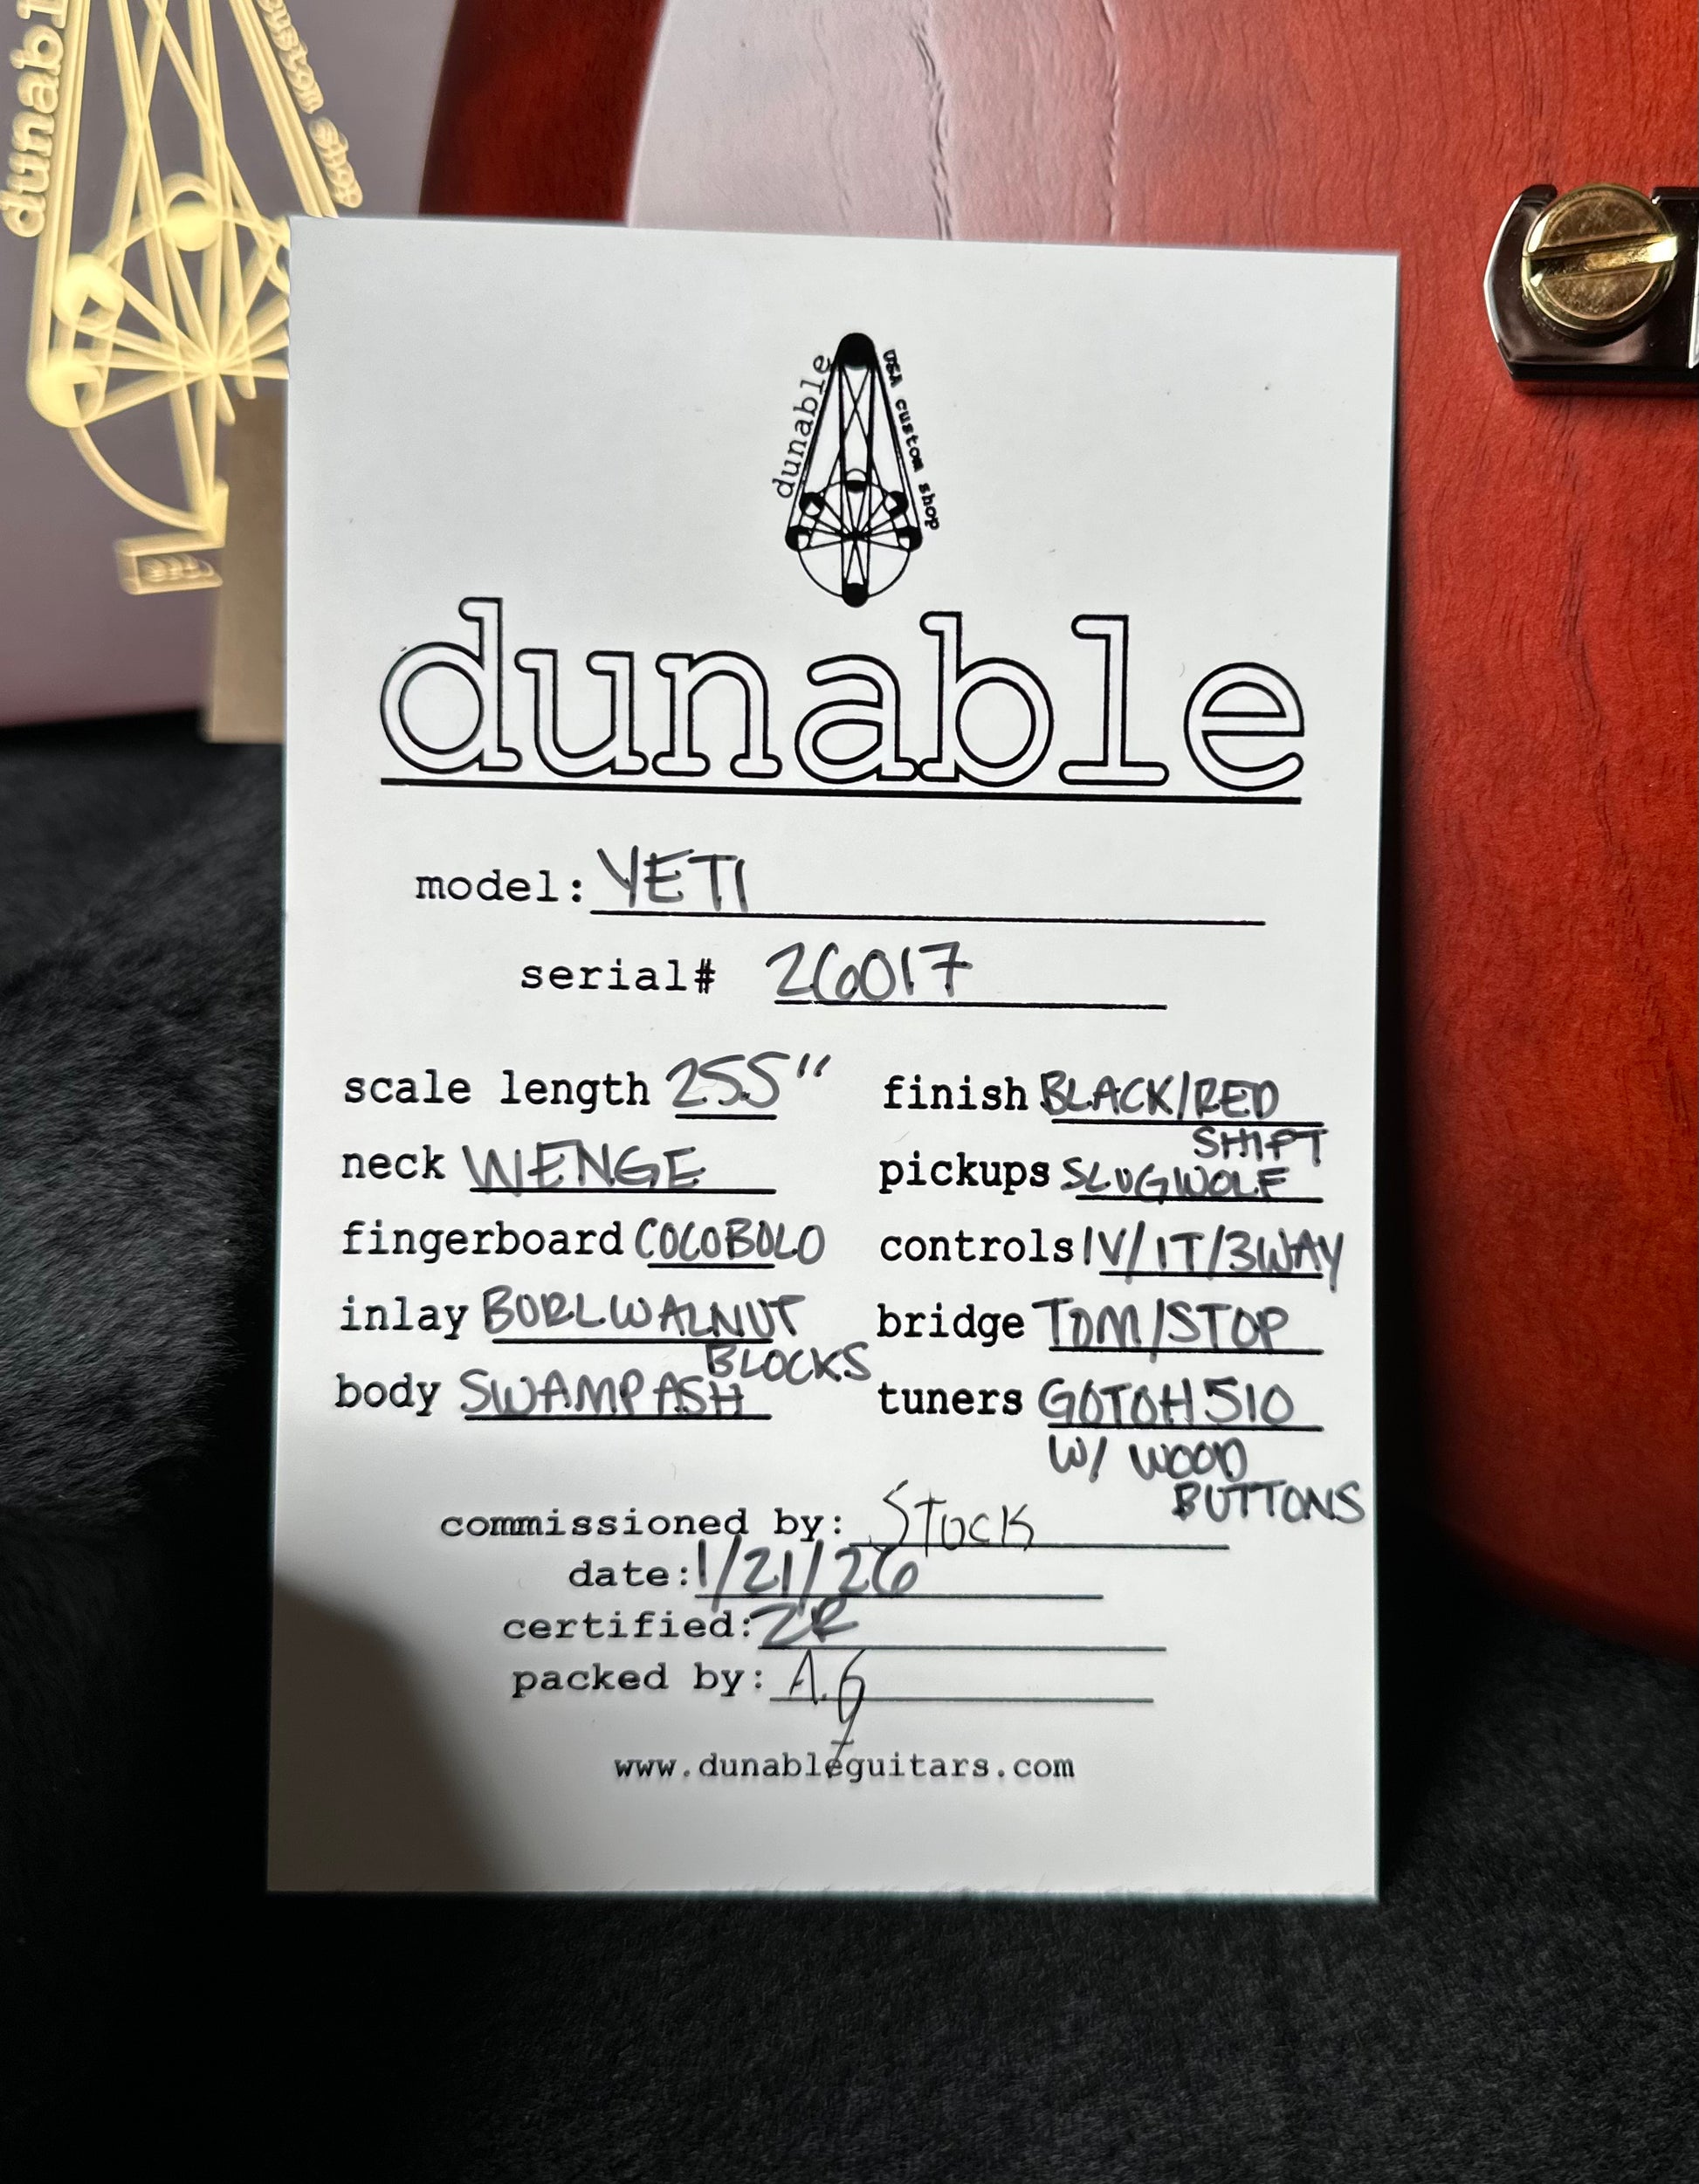 dunable
custom shop
dunable USA custom shop
dunable
model: YETI
serial# 26017
scale length 25.5" finish BLACK/RED
SHIFT
neck WENGE pickups SLUGWOLF
fingerboard COCOBOLO controls 1V/1T/3WAY
inlay BURLWALNUT bridge TOM/STOP
BLOCKS
body SWAMP ASH tuners GOTOH 510
W/ WOOD
BUTTONS
commissioned by: STOCK
date: 1/21/26
certified: ZR
packed by: A.G
www.dunableguitars.com